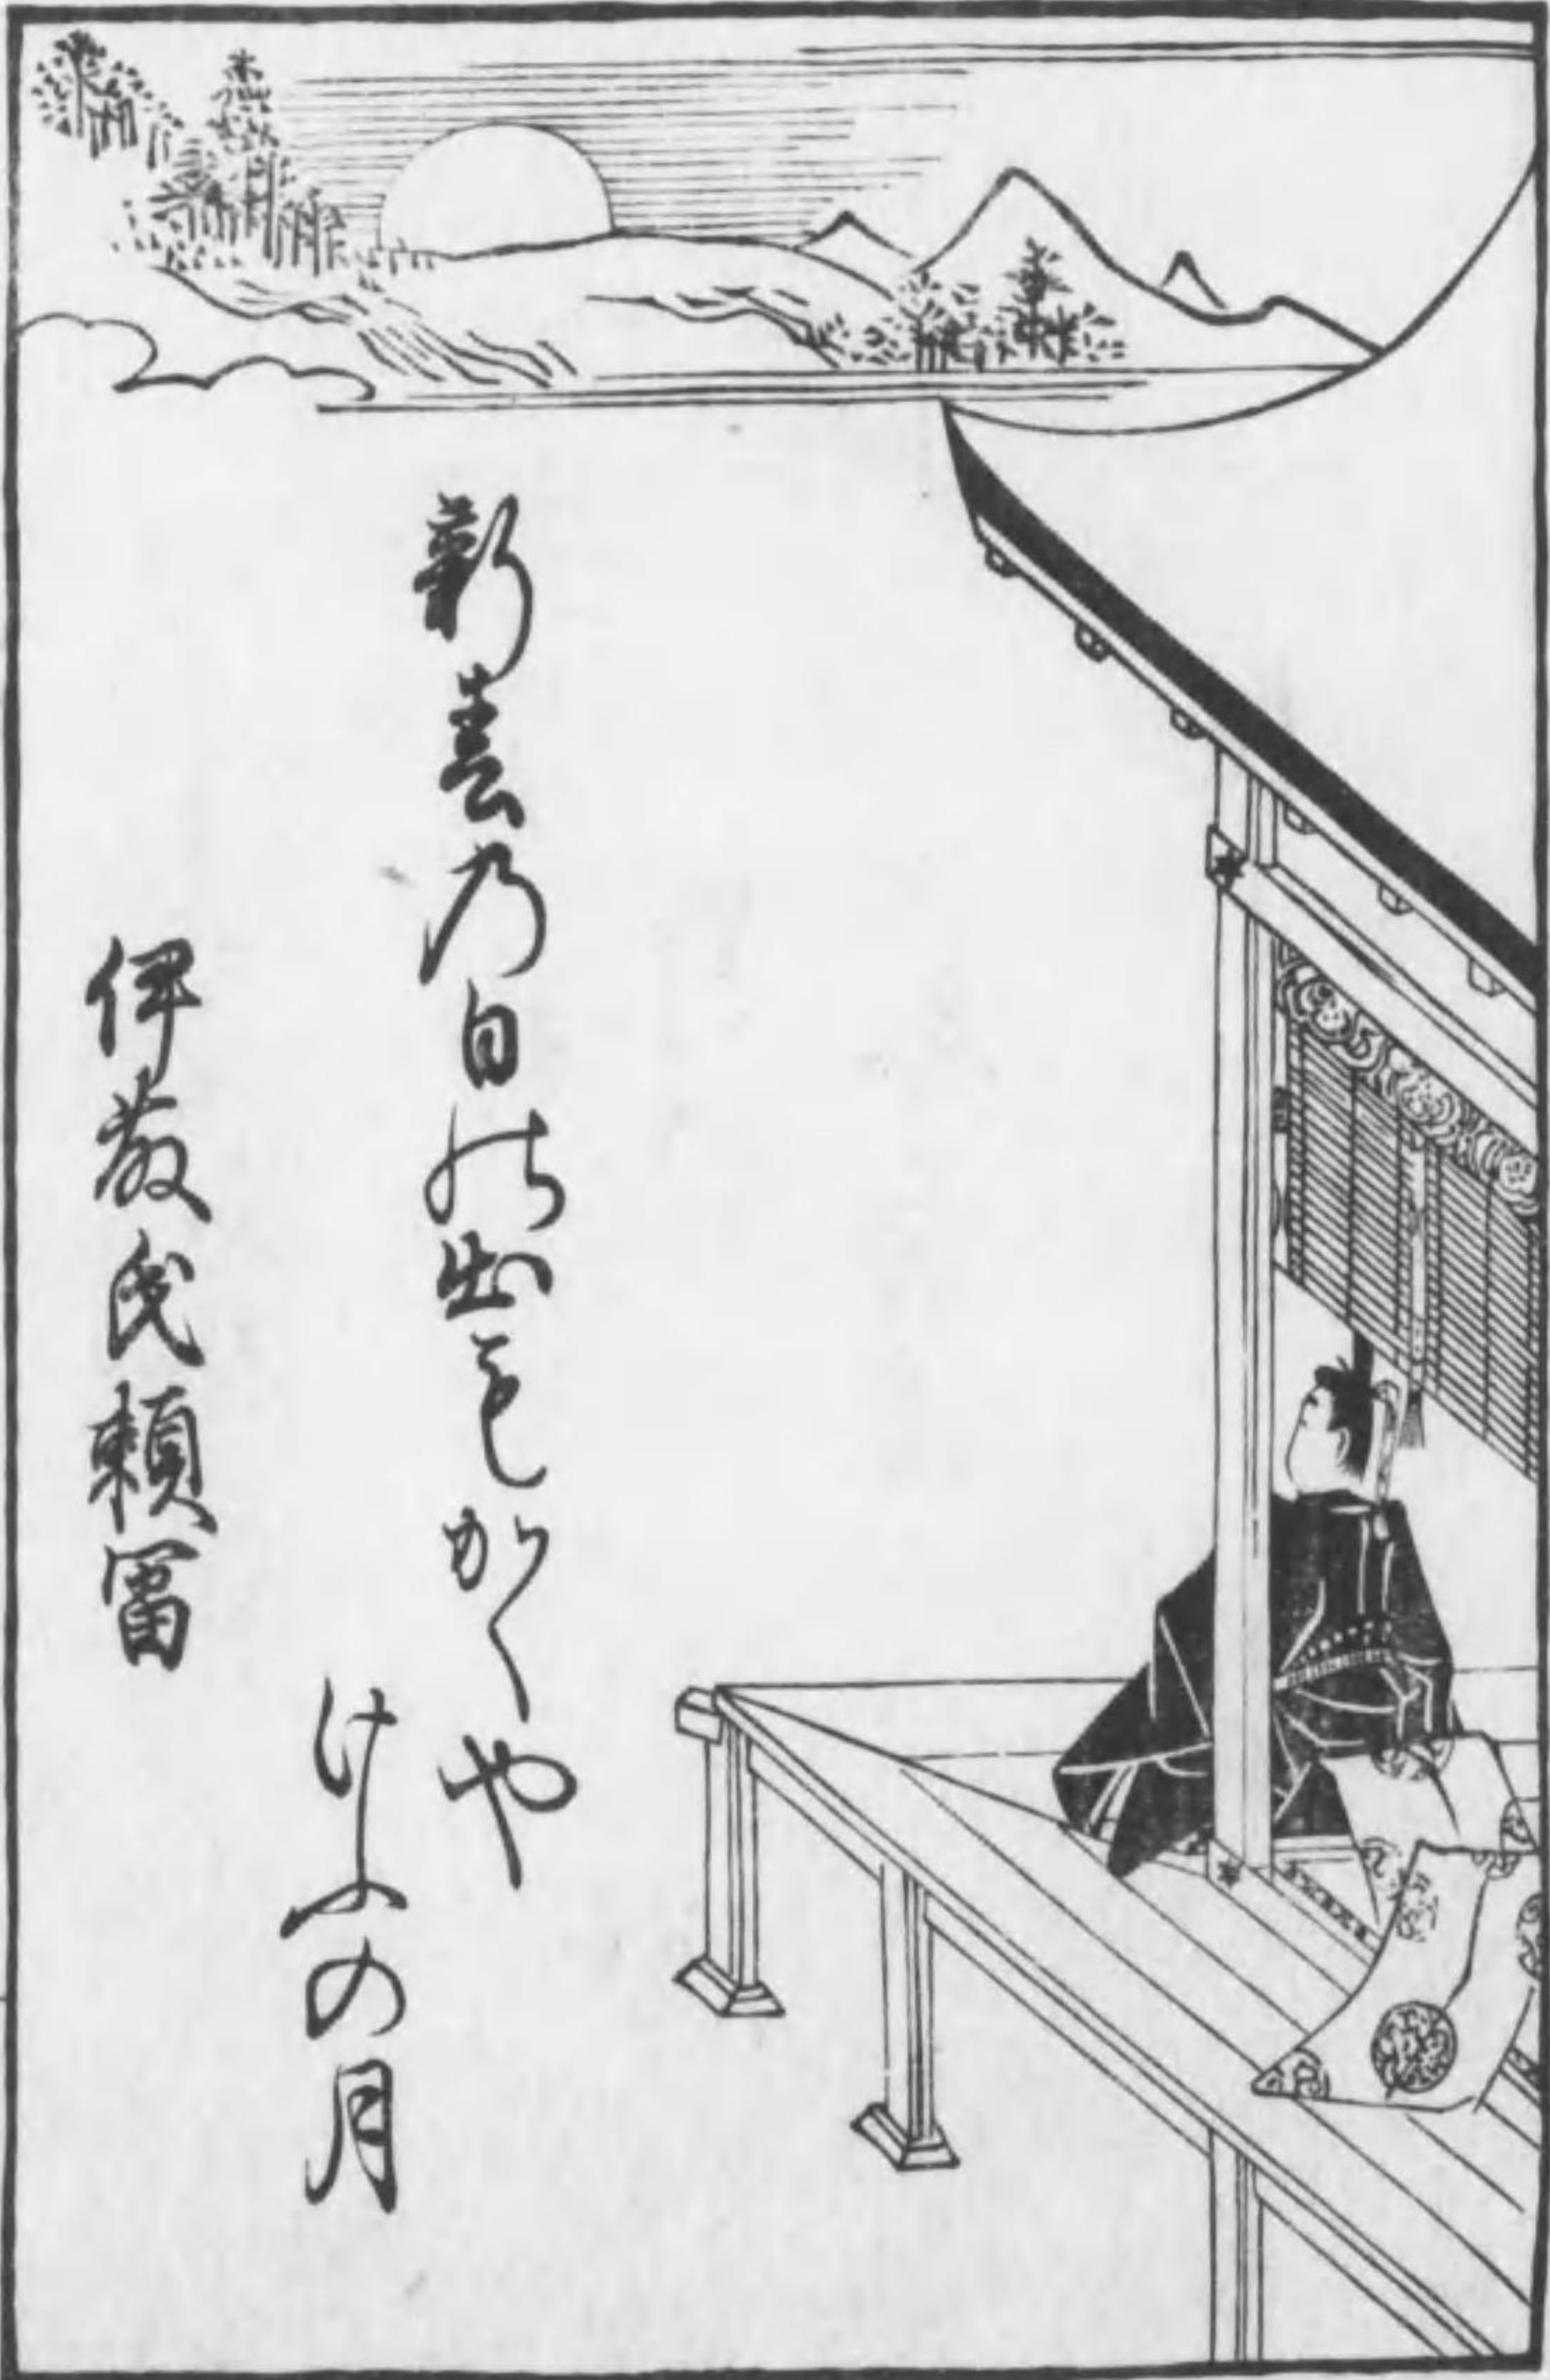 新春乃日能出もかくや
けふの月
伊藤氏頼冨